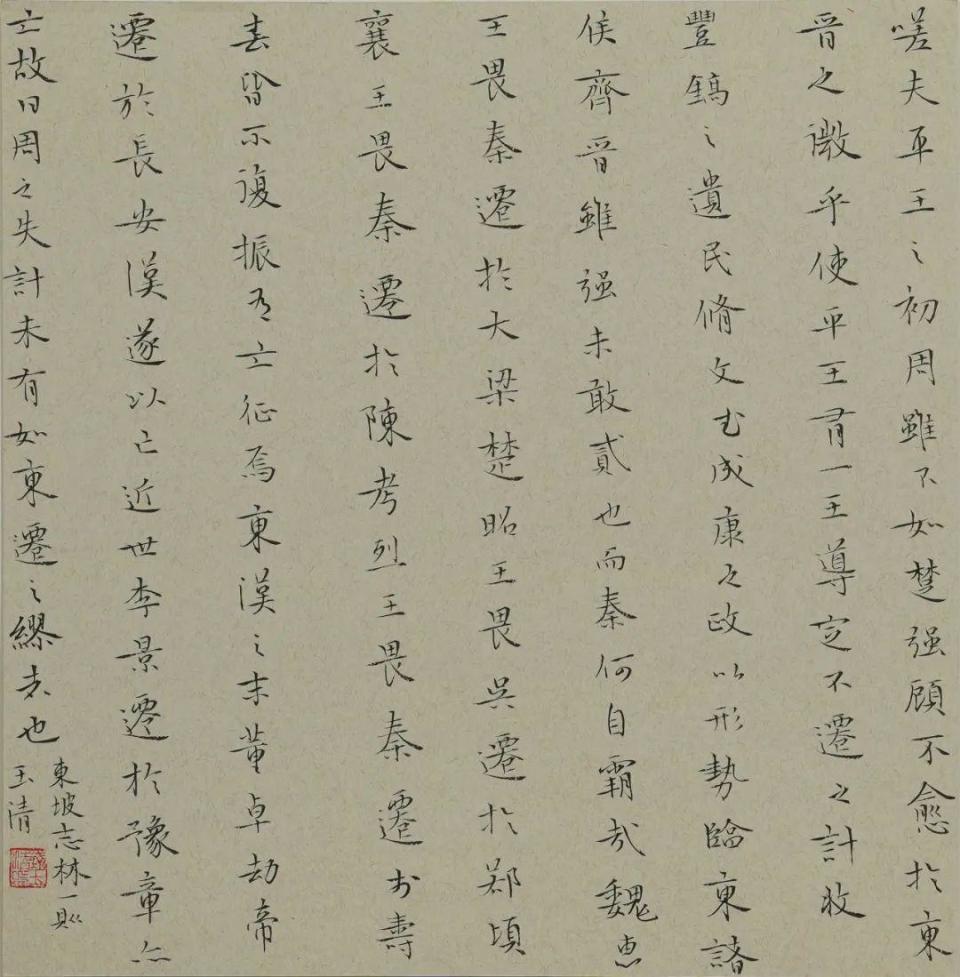 嗟夫平王之初周雖不如楚强顧不愈於東
晉之微乎使平王有一王導定不遷之計收
豐鎬之遺民脩文武成康之政以形勢臨東諸
侯齊晉雖强未敢貳也而秦何自霸哉魏惠
王畏秦遷於大梁楚昭王畏吳遷於郑頃
襄王畏秦遷於陳考烈王畏秦遷於壽
春皆不復振有亡征焉東漢之末董卓劫帝
遷於長安漢遂以亡近世李景遷於豫章亦
亡故曰周之失計未有如東遷之繆者也
東坡志林一則
玉清